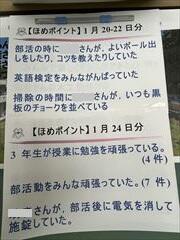 【ほめポイント】1月20-22日分
部活の時に　　さんが、よいボール出
しをしたり、コツを教えたりしていた
英語検定をみんながんばっていた
掃除の時間に　　さんが、いつも黒
板のチョークを並べている
【ほめポイント】1月24日分
3年生が授業に勉強を頑張っている。
(4件)
部活動をみんな頑張っていた。(7件)
さんが、部活後に電気を消して
施錠していた。